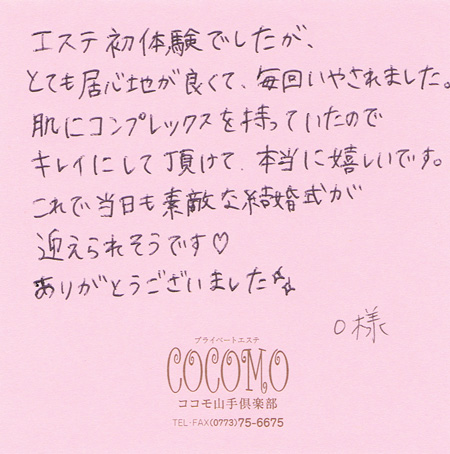 エステ初体験でしたが、
とても居心地が良くて、毎回いやされました。
肌にコンプレックスを持っていたので
キレイにして頂けて、本当に嬉しいです。
これで当日も素敵な結婚式が
迎えられそうです♡
ありがとうございました☆
O様
プライベートエステ
COCOMO
ココモ山手倶楽部
TEL・FAX(0773)75-6675